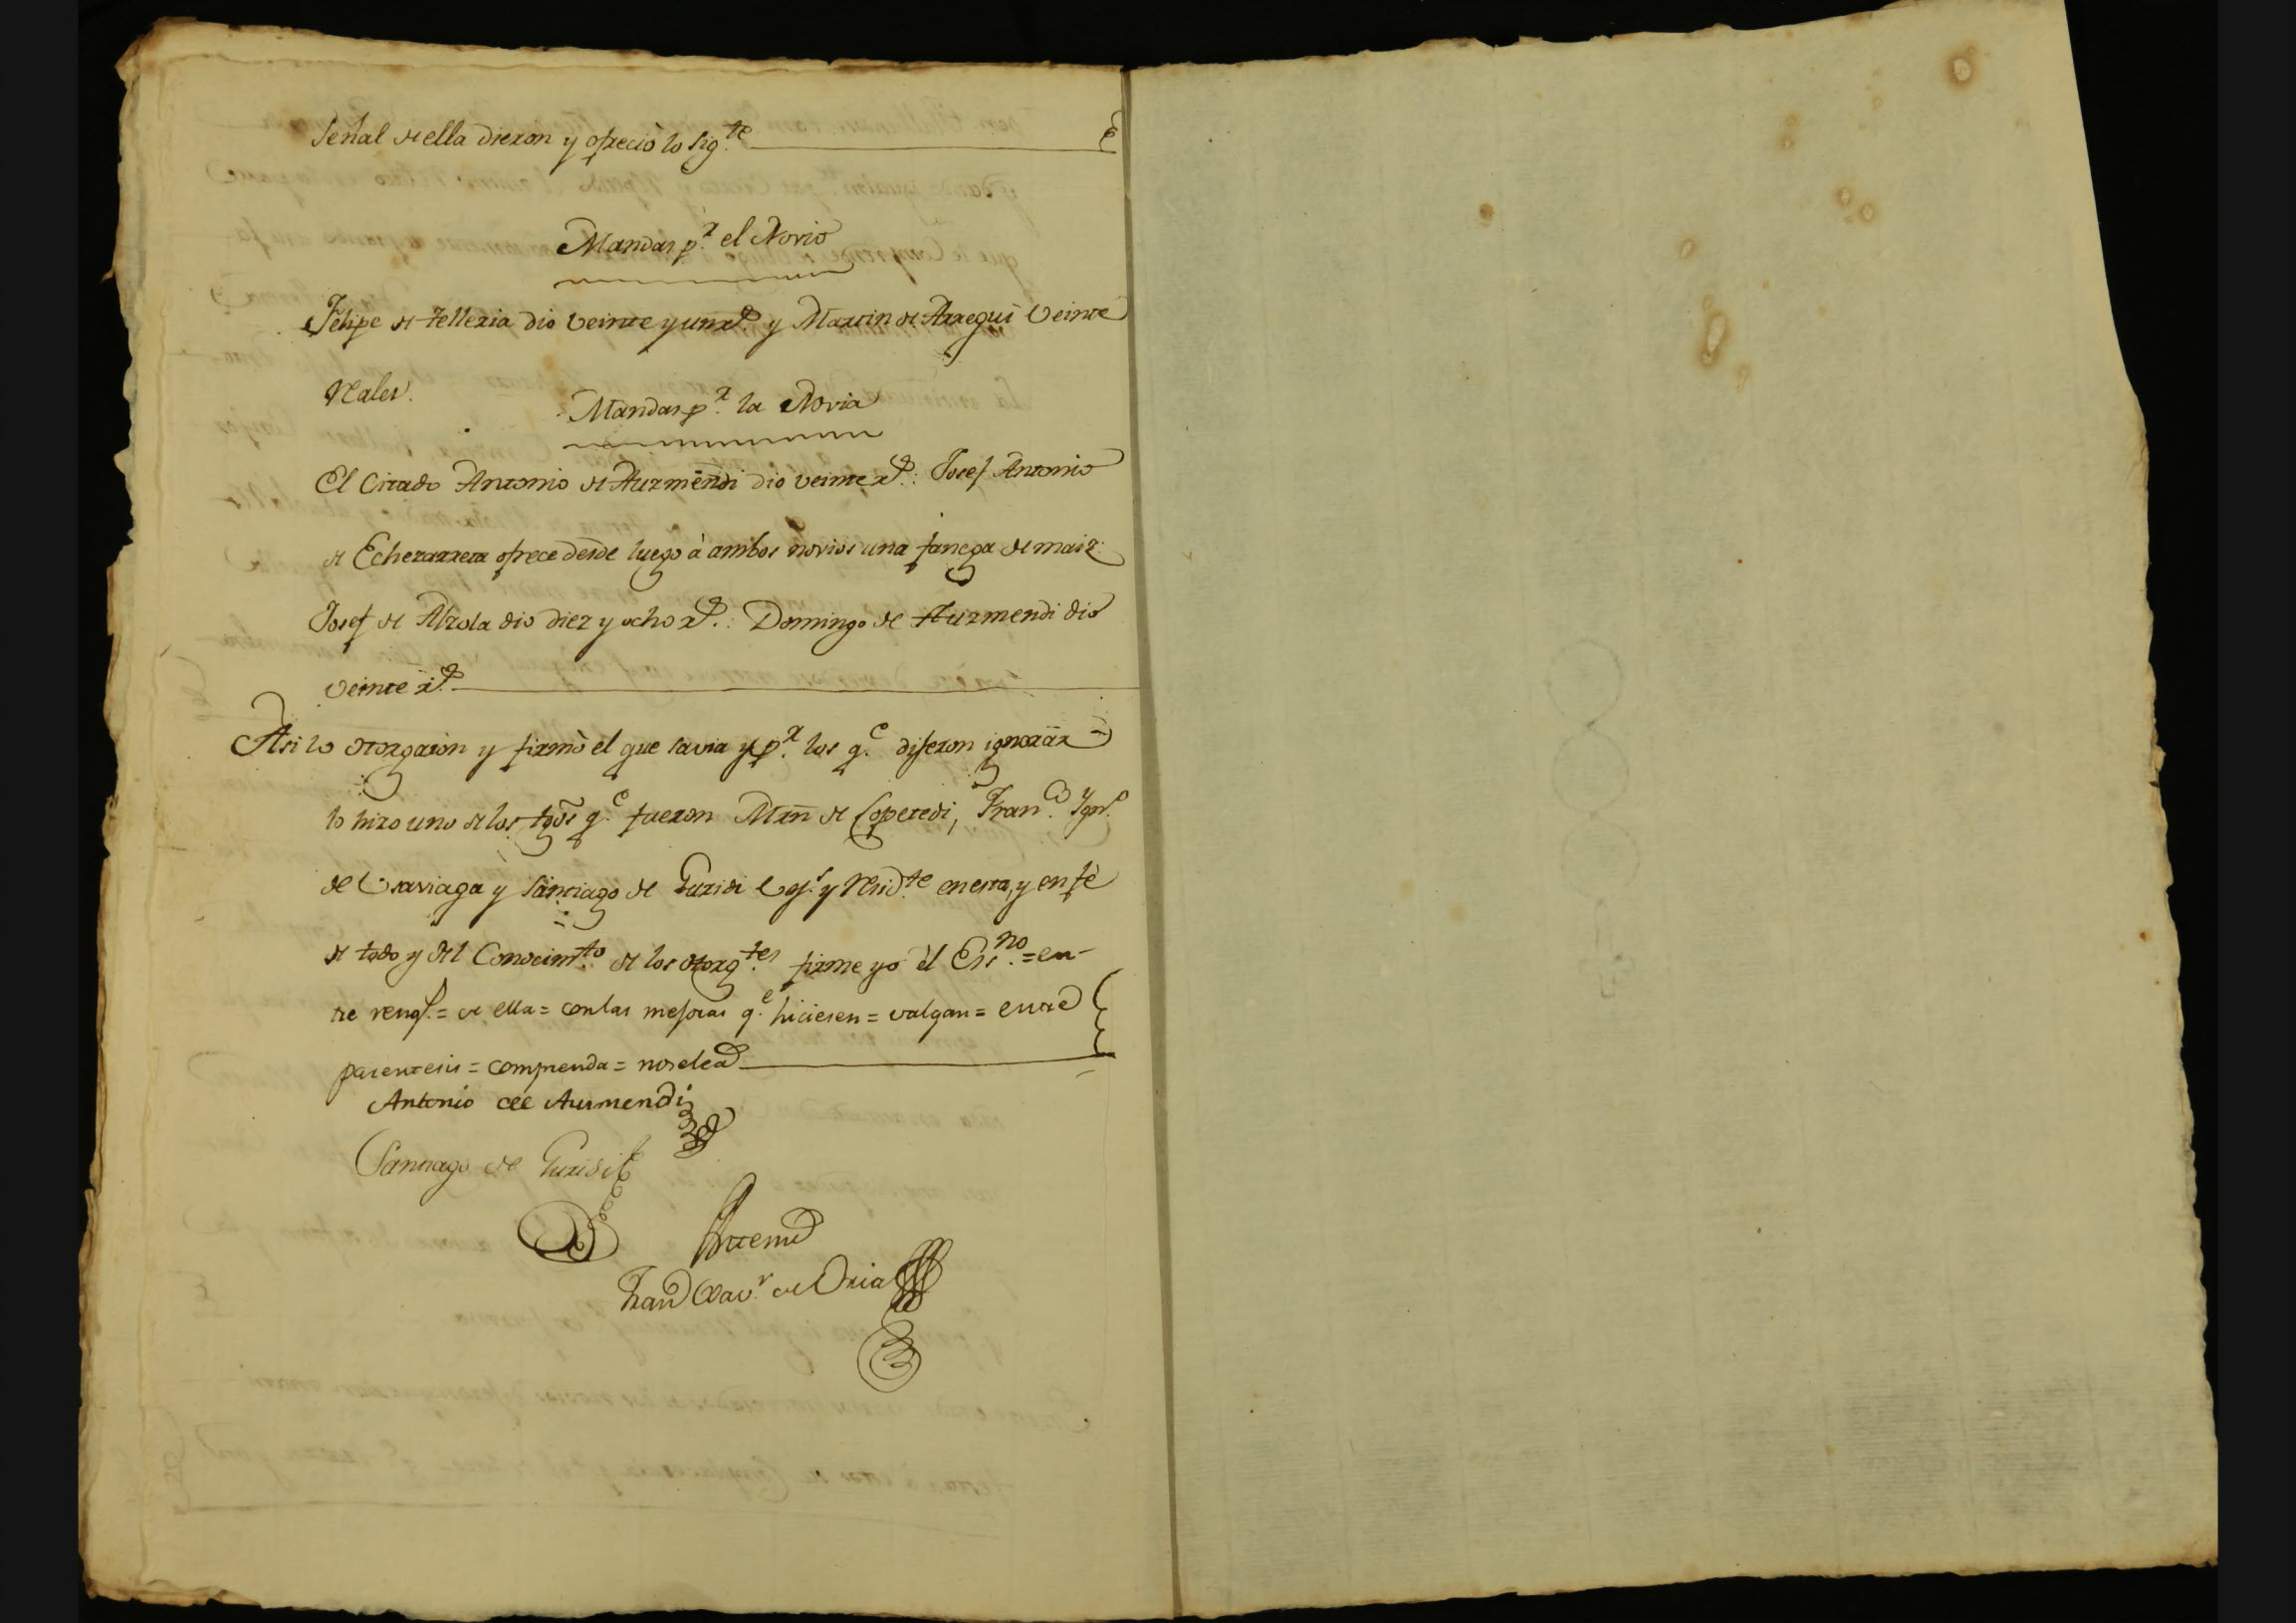 señal de ella dieron y ofreció lo sig.te
Mandas p.a el Novio
Felipe de Telleria dio veinte y un r.s y Martin de Arregui veinte
Reales.
Mandas p.a la Novia
El citado Antonio de Auzmendi dio veinte r.s: Josef Antonio
de Echezarreta ofrece desde luego à ambos novios una fanega de maiz:
Josef de Alzola dio diez y ocho r.s: Domingo de Auzmendi dio
veinte r.s
Asi lo otorgaron y firmò el que savia y p.r los q.e dijeron ignorar
lo hizo uno de los tgõs q.e fueron Mrñ de Lopetedi, Fran.co Ygn.o
de Usaviaga y Santiago de Guridi v.s y resid.te en esta, y en fè
de todo y del Conocim.to de los otorg.tes firme yo el Ess.no = en-
tre reng.s = de ella = con las mejoras q.e hiciesen = valgan = entre
parentesis = comprenda = no se lea
Antonio de Ausmendi
Santiago de Guridi
Ante mi
Fran.co Xav.r de Oria